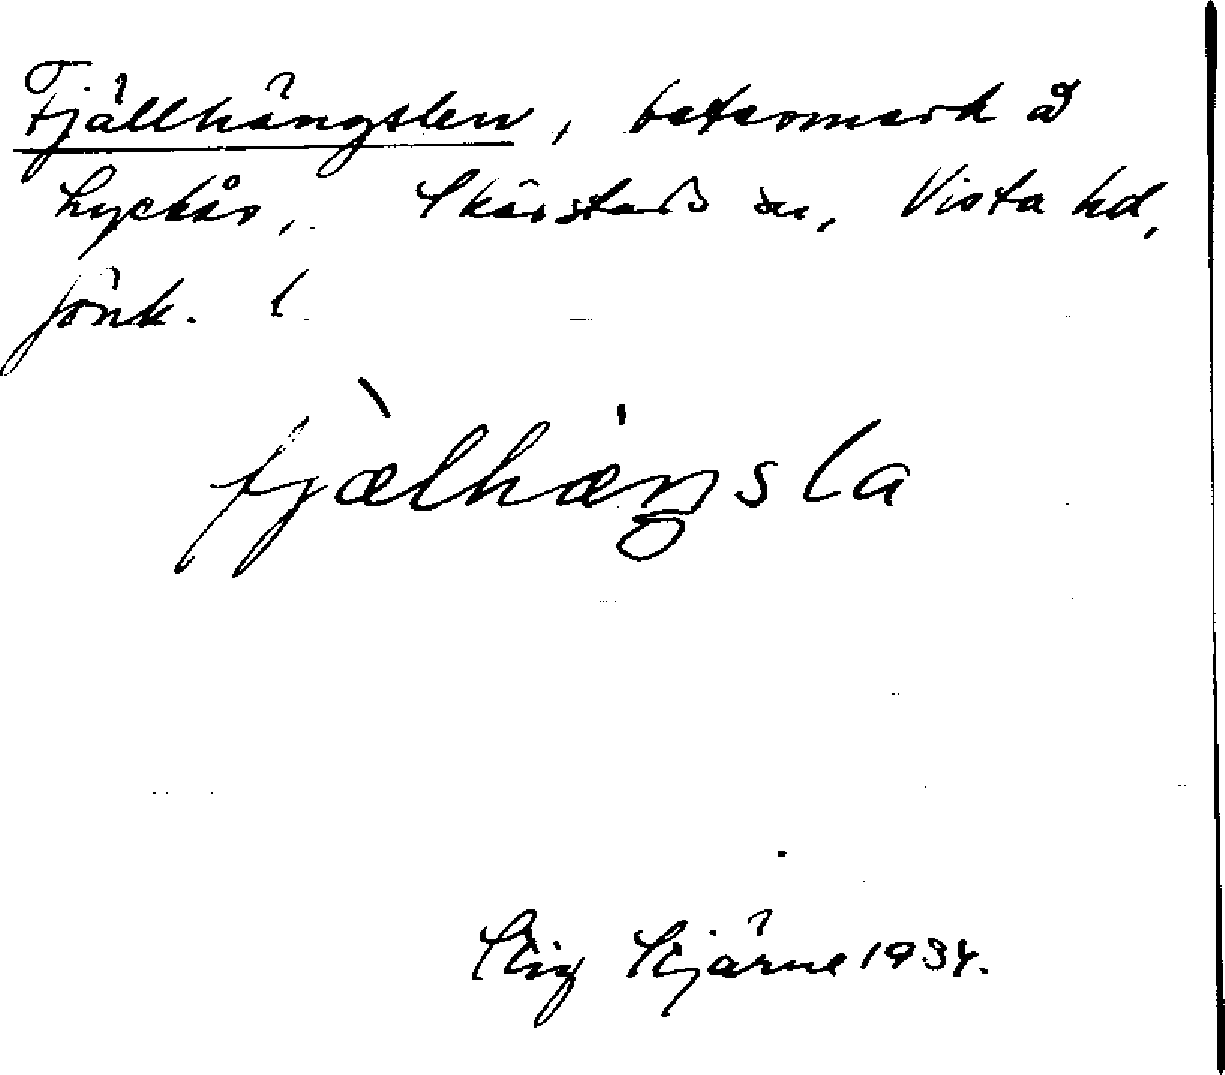 Fjällhängslen, betesmark å
Lyckås, Skärstads sn, Vista hd,
Jönk. l
fjàlhæŋsla
Stig Stjärne 1934.